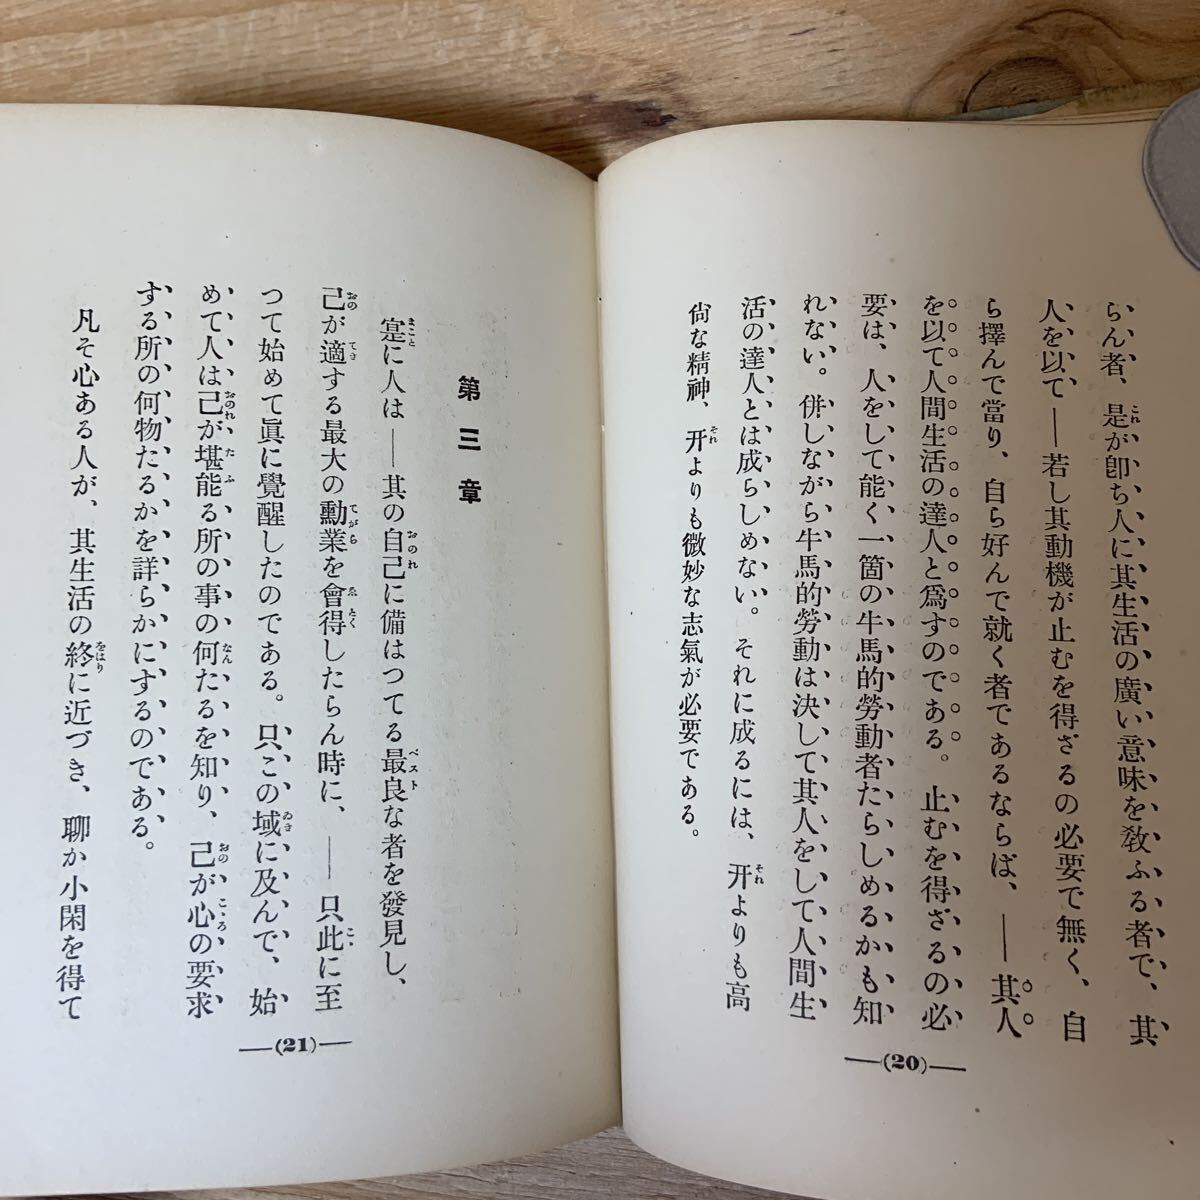 らん者、是が卽ち人に其生活の廣い意味を敎ふる者で、其
人を以て──若し其動機が止むを得ざるの必要で無く、自
ら擇んで當り、自ら好んで就く者であるならば、──其人
を以て人間生活の達人と爲すのである。止むを得ざるの必
要は、人をして能く一箇の牛馬的勞動者たらしめるかも知
れない。併しながら牛馬的勞動は決して其人をして人間生
活の達人とは成らしめない。それに成るには、开よりも高
尙な精神、开よりも微妙な志氣が必要である。
(20)
第三章
寔に人は──其の自己に備はつてる最良な者を發見し、
己が適する最大の勳業を會得したらん時に、──只此に至
つて始めて眞に覺醒したのである。只この域に及んで、始
めて人は己が堪能る所の事の何たるを知り、己が心の要求
する所の何物たるかを詳らかにするのである。
凡そ心ある人が、其生活の終に近づき、聊か小閑を得て
(21)